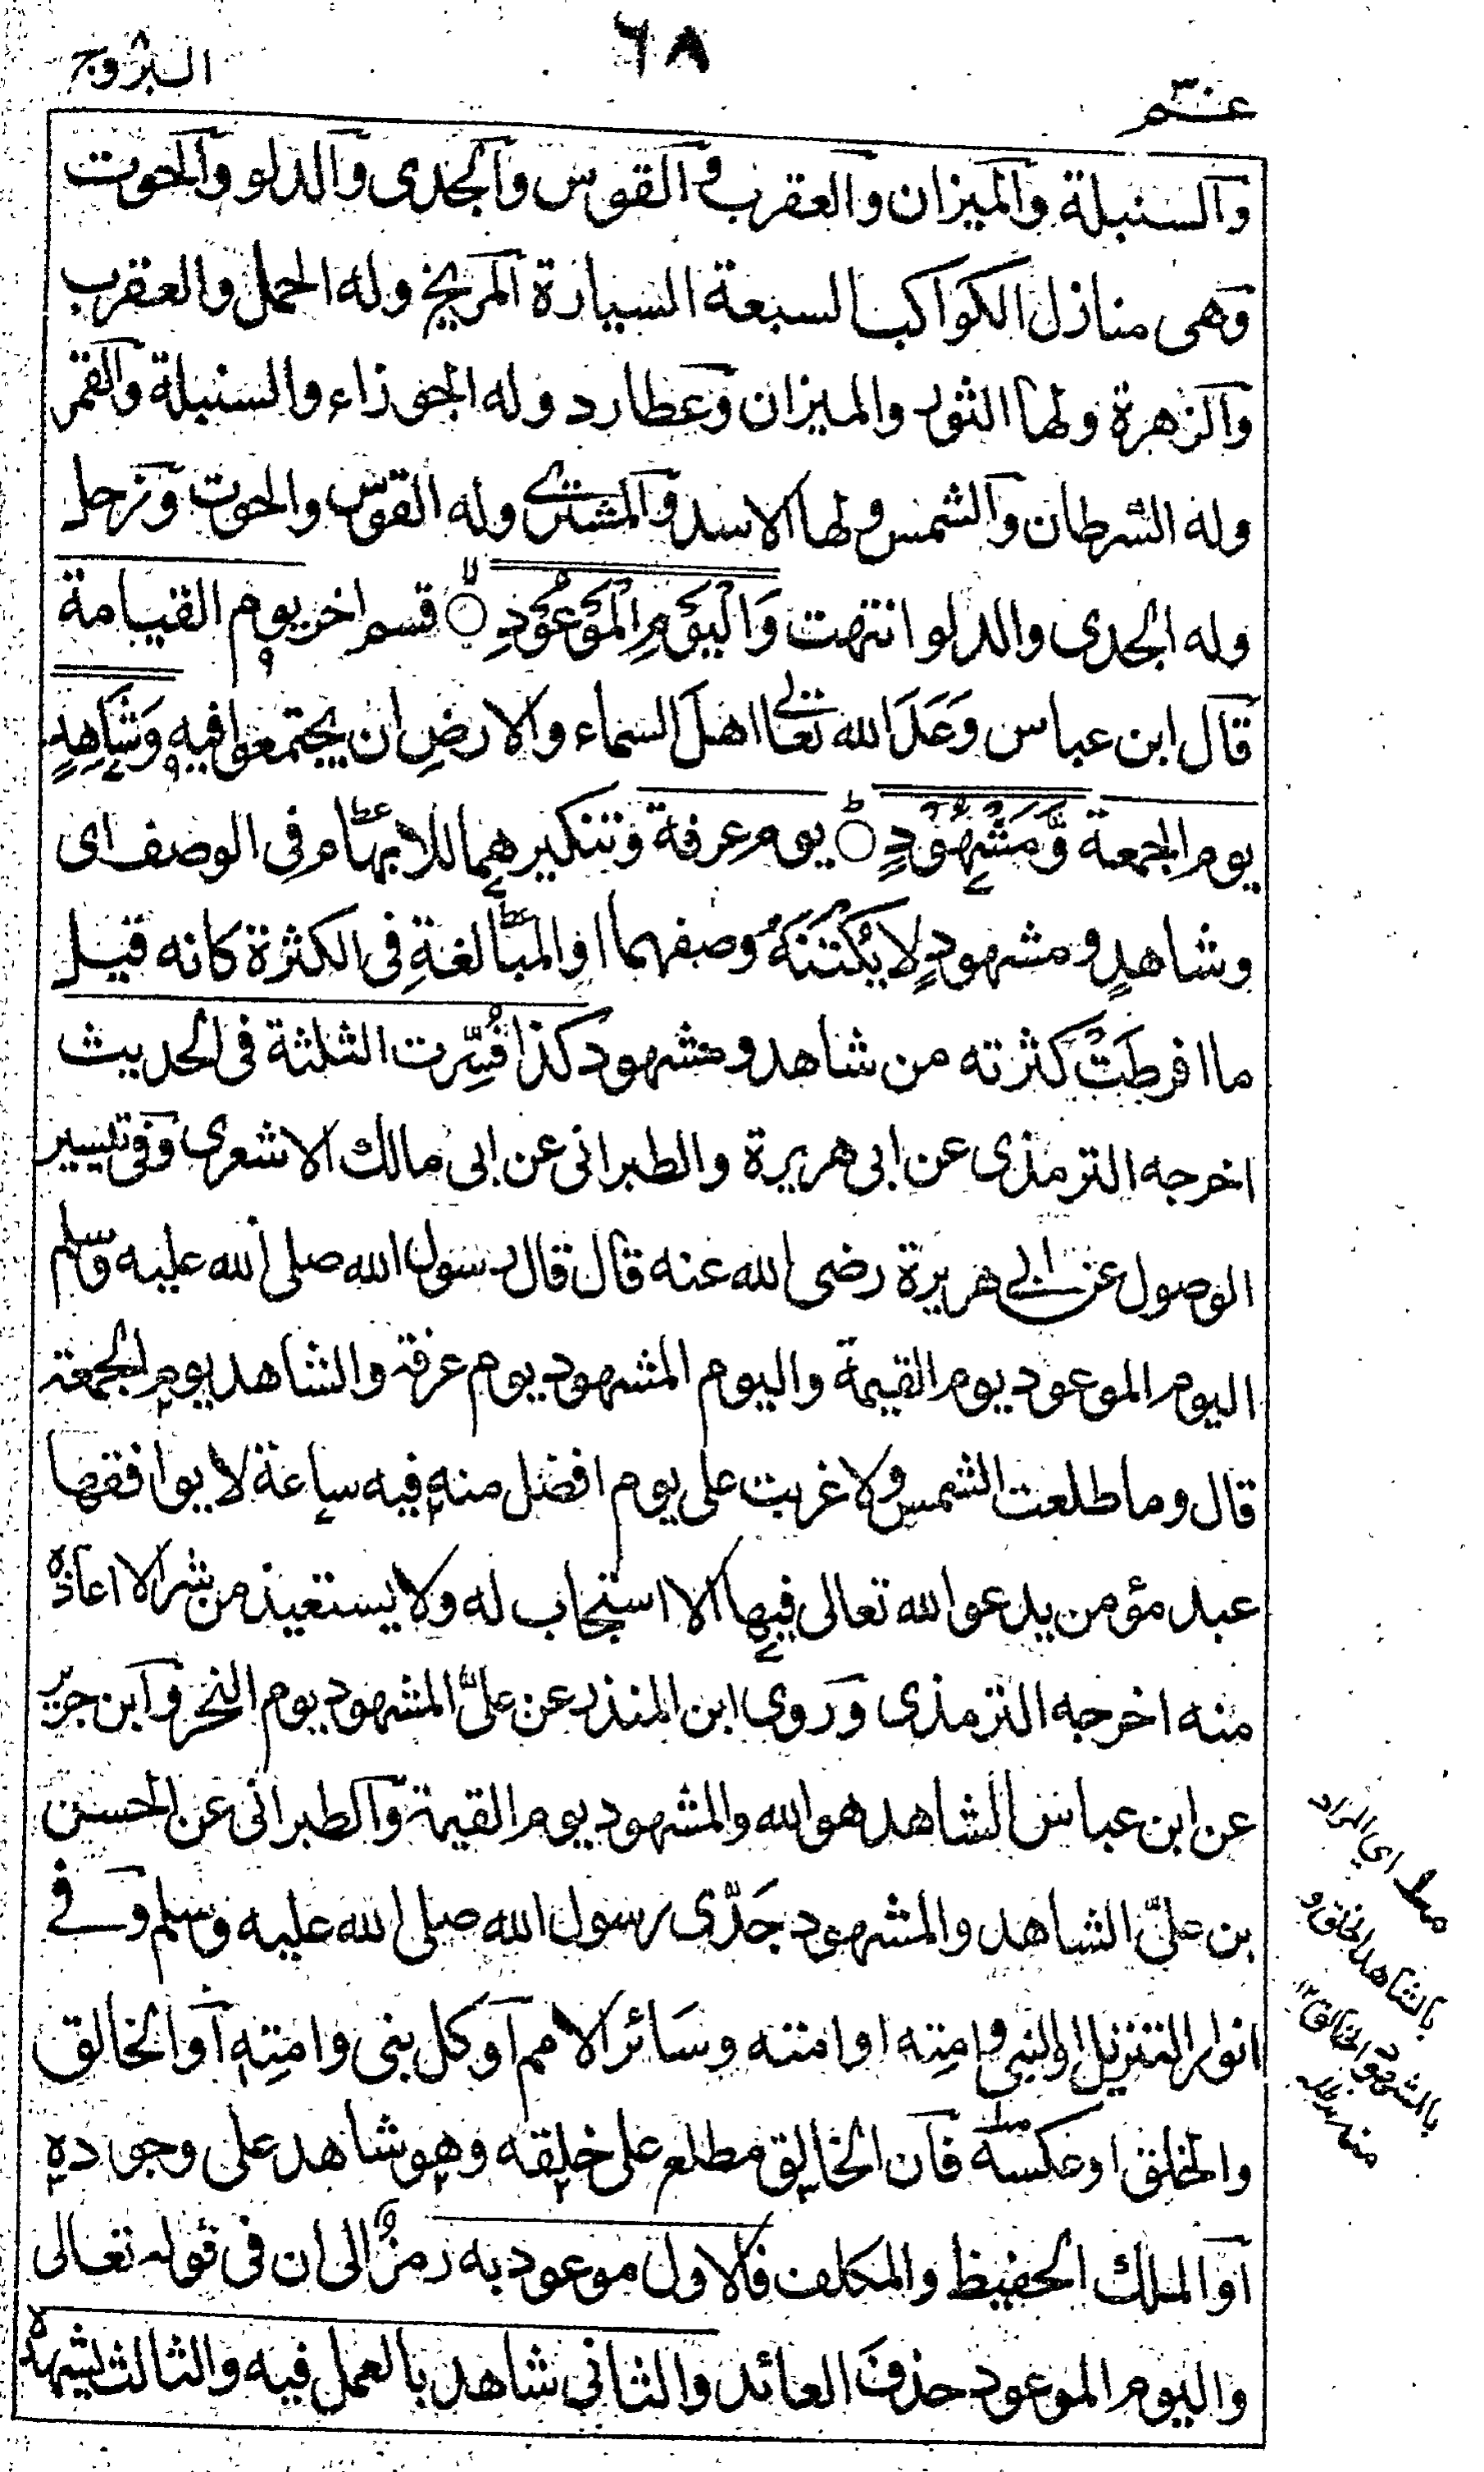 عـم
٦٨
البروج
والسنبلة والميزان والعقرب والقوس والجدى والدلو والحوت
وهى منازل الكواكب السبعة السيارة المريخ وله الحمل والعقرب
والزهرة ولها الثور والميزان وعطارد وله الجوزاء والسنبلة والقمر
وله السرطان والشمس ولها الاسد والمشترى وله القوس والحوت وزحل
وله الجدى والدلو انتهت وَالْيَوْمِ الْمَوْعُوْدِ ۙ قسم اخر يوم القيامة
قال ابن عباس وَعَدَ الله تعالى اهلَ السماء والارضِ ان يجتمعوا فيه وَشَاهِدٍ
يوم الجمعة وَّمَشْهُوْدٍ ؕ يوم عرفة وتنكيرهما للابهام فى الوصف اى
وشاهدٍ ومشهودٍ لا يُكْتَنَهُ وصفهما او المبالغةِ فى الكثرة كانه قيل
ما افرطَتْ كثرته من شاهد ومشهود كذا فُسِّرت الثلثة فى الحديث
اخرجه الترمذى عن ابى هريرة والطبرانى عن ابى مالك الاشعرى وفى تيسير
الوصول عن ابى هريرة رضى الله عنه قال قال رسول الله صلى الله عليه وسلم
اليوم الموعود يوم القيمة واليوم المشهود يوم عرفة والشاهد يوم الجمعة
قال وما طلعت الشمس ولا غربت على يوم افضل منه فيه ساعة لا يوافقها
عبد مؤمن يدعو الله تعالى فيها الا استجاب له ولا يستعيذ من شر الا اعاذه
منه اخرجه الترمذى وروى ابن المنذر عن علىّ المشهود يوم النحر وابن جرير
عن ابن عباس الشاهد هو الله والمشهود يوم القيمة والطبرانى عن الحسن
بن علىّ الشاهد والمشهود جَدِّى رسول الله صلى الله عليه وسلم وفى
انوار التنزيل او النبى وامته او امته وسائر الامم او كل نبى وامته او الخالق
والخلق او عكسه فان الخالق مطلع على خلقه وهو شاهد على وجوده
او الملك الحفيظ والمكلف فالاول موعود به رمزٌ الى ان فى قوله تعالى
واليوم الموعود حذفَ العائد والثانى شاهد بالعمل فيه والثالث يشهده
اى المراد
بالشاهد الخلق و
بالمشهود الخالق ١٢
منه